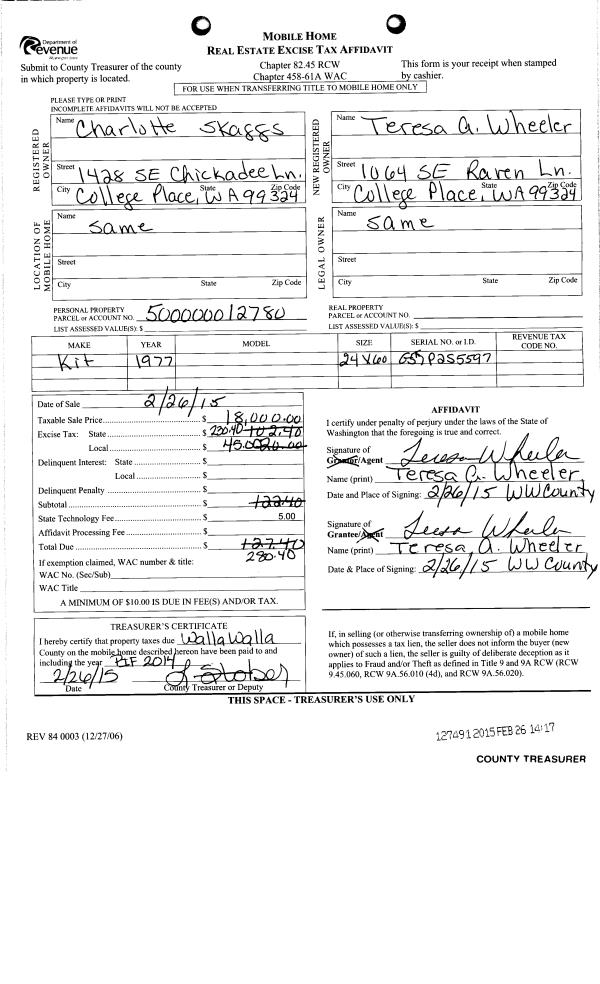 Department of
Revenue
Washington State
MOBILE HOME
REAL ESTATE EXCISE TAX AFFIDAVIT
Submit to County Treasurer of the county
in which property is located.
Chapter 82.45 RCW
Chapter 458-61A WAC
This form is your receipt when stamped
by cashier.
FOR USE WHEN TRANSFERRING TITLE TO MOBILE HOME ONLY
PLEASE TYPE OR PRINT
INCOMPLETE AFFIDAVITS WILL NOT BE ACCEPTED
REGISTERED OWNER
Name Charlotte Skaggs
Street 1428 SE Chickadee Ln.
City State Zip Code
College Place, WA 99324
NEW REGISTERED OWNER
Name Teresa A. Wheeler
Street 1064 SE Raven Ln.
City State Zip Code
College Place, WA 99324
LOCATION OF MOBILE HOME
Name same
Street
City State Zip Code
LEGAL OWNER
Name same
Street
City State Zip Code
PERSONAL PROPERTY
PARCEL or ACCOUNT NO. 500000012780
LIST ASSESSED VALUE(S): $
REAL PROPERTY
PARCEL or ACCOUNT NO.
LIST ASSESSED VALUE(S): $
MAKE YEAR MODEL SIZE SERIAL NO. or I.D. REVENUE TAX CODE NO.
Kit 1977 24 X60 GS2P2S5597
Date of Sale 2/26/15
Taxable Sale Price $ 18,000.00
Excise Tax: State $ 230.40 102.40
Local $ 45.00 20.00
Delinquent Interest: State $
Local $
Delinquent Penalty $
Subtotal $ 122.40
State Technology Fee $ 5.00
Affidavit Processing Fee $
Total Due $ 127.40
280.40
If exemption claimed, WAC number & title:
WAC No. (Sec/Sub)
WAC Title
A MINIMUM OF $10.00 IS DUE IN FEE(S) AND/OR TAX.
AFFIDAVIT
I certify under penalty of perjury under the laws of the State of
Washington that the foregoing is true and correct.
Signature of
Grantor/Agent Teresa Wheeler
Name (print) Teresa A. Wheeler
Date and Place of Signing: 2/26/15 WW County
Signature of
Grantee/Agent Teresa Wheeler
Name (print) Teresa, A. Wheeler
Date & Place of Signing: 2/26/15 WW County
TREASURER'S CERTIFICATE
I hereby certify that property taxes due Walla Walla
County on the mobile home described hereon have been paid to and
including the year PIF 2014
2/26/15
Date County Treasurer or Deputy
If, in selling (or otherwise transferring ownership of) a mobile home
which possesses a tax lien, the seller does not inform the buyer (new
owner) of such a lien, the seller is guilty of deliberate deception as it
applies to Fraud and/or Theft as defined in Title 9 and 9A RCW (RCW
9.45.060, RCW 9A.56.010 (4d), and RCW 9A.56.020).
THIS SPACE - TREASURER'S USE ONLY
REV 84 0003 (12/27/06)
127491 2015 FEB 26 14:17
COUNTY TREASURER